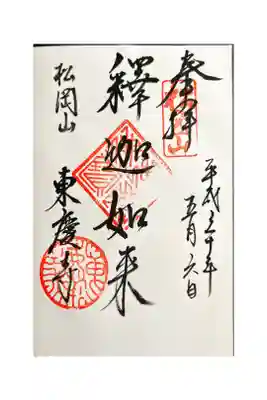 奉拝
平成三十年
五月六日
釋迦如来
松岡山
東慶寺